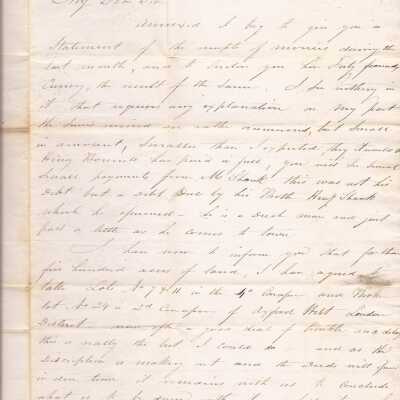 My Dear Sir
Annexed I beg to give you a
Statement of the receipts of monies during the
last month, and I enclose you
the result of the same. I see nothing in
it that requires any explanation on my part
the Sums received are rather numerous, but small
in amount, Smaller than I expected, they
being has paid in full, you will see several
Small payments from Mr Shank this was not his
Debt but a debt due by his Brother Shank
which he assumed – he is a Dutch man and just
pays a little as he comes to town.
I have now to inform you that for the
five hundred acres of land, I have agreed to
take Lots No 7 & 11 in the 4th Concession and
lot No 24 in 2d Concession of Oxford West London
District – now after a good deal of trouble and delay
this is really the best I could do and as the
Description is making out and the Deeds will
in due time, it remains with us to conclude
what is to be done with